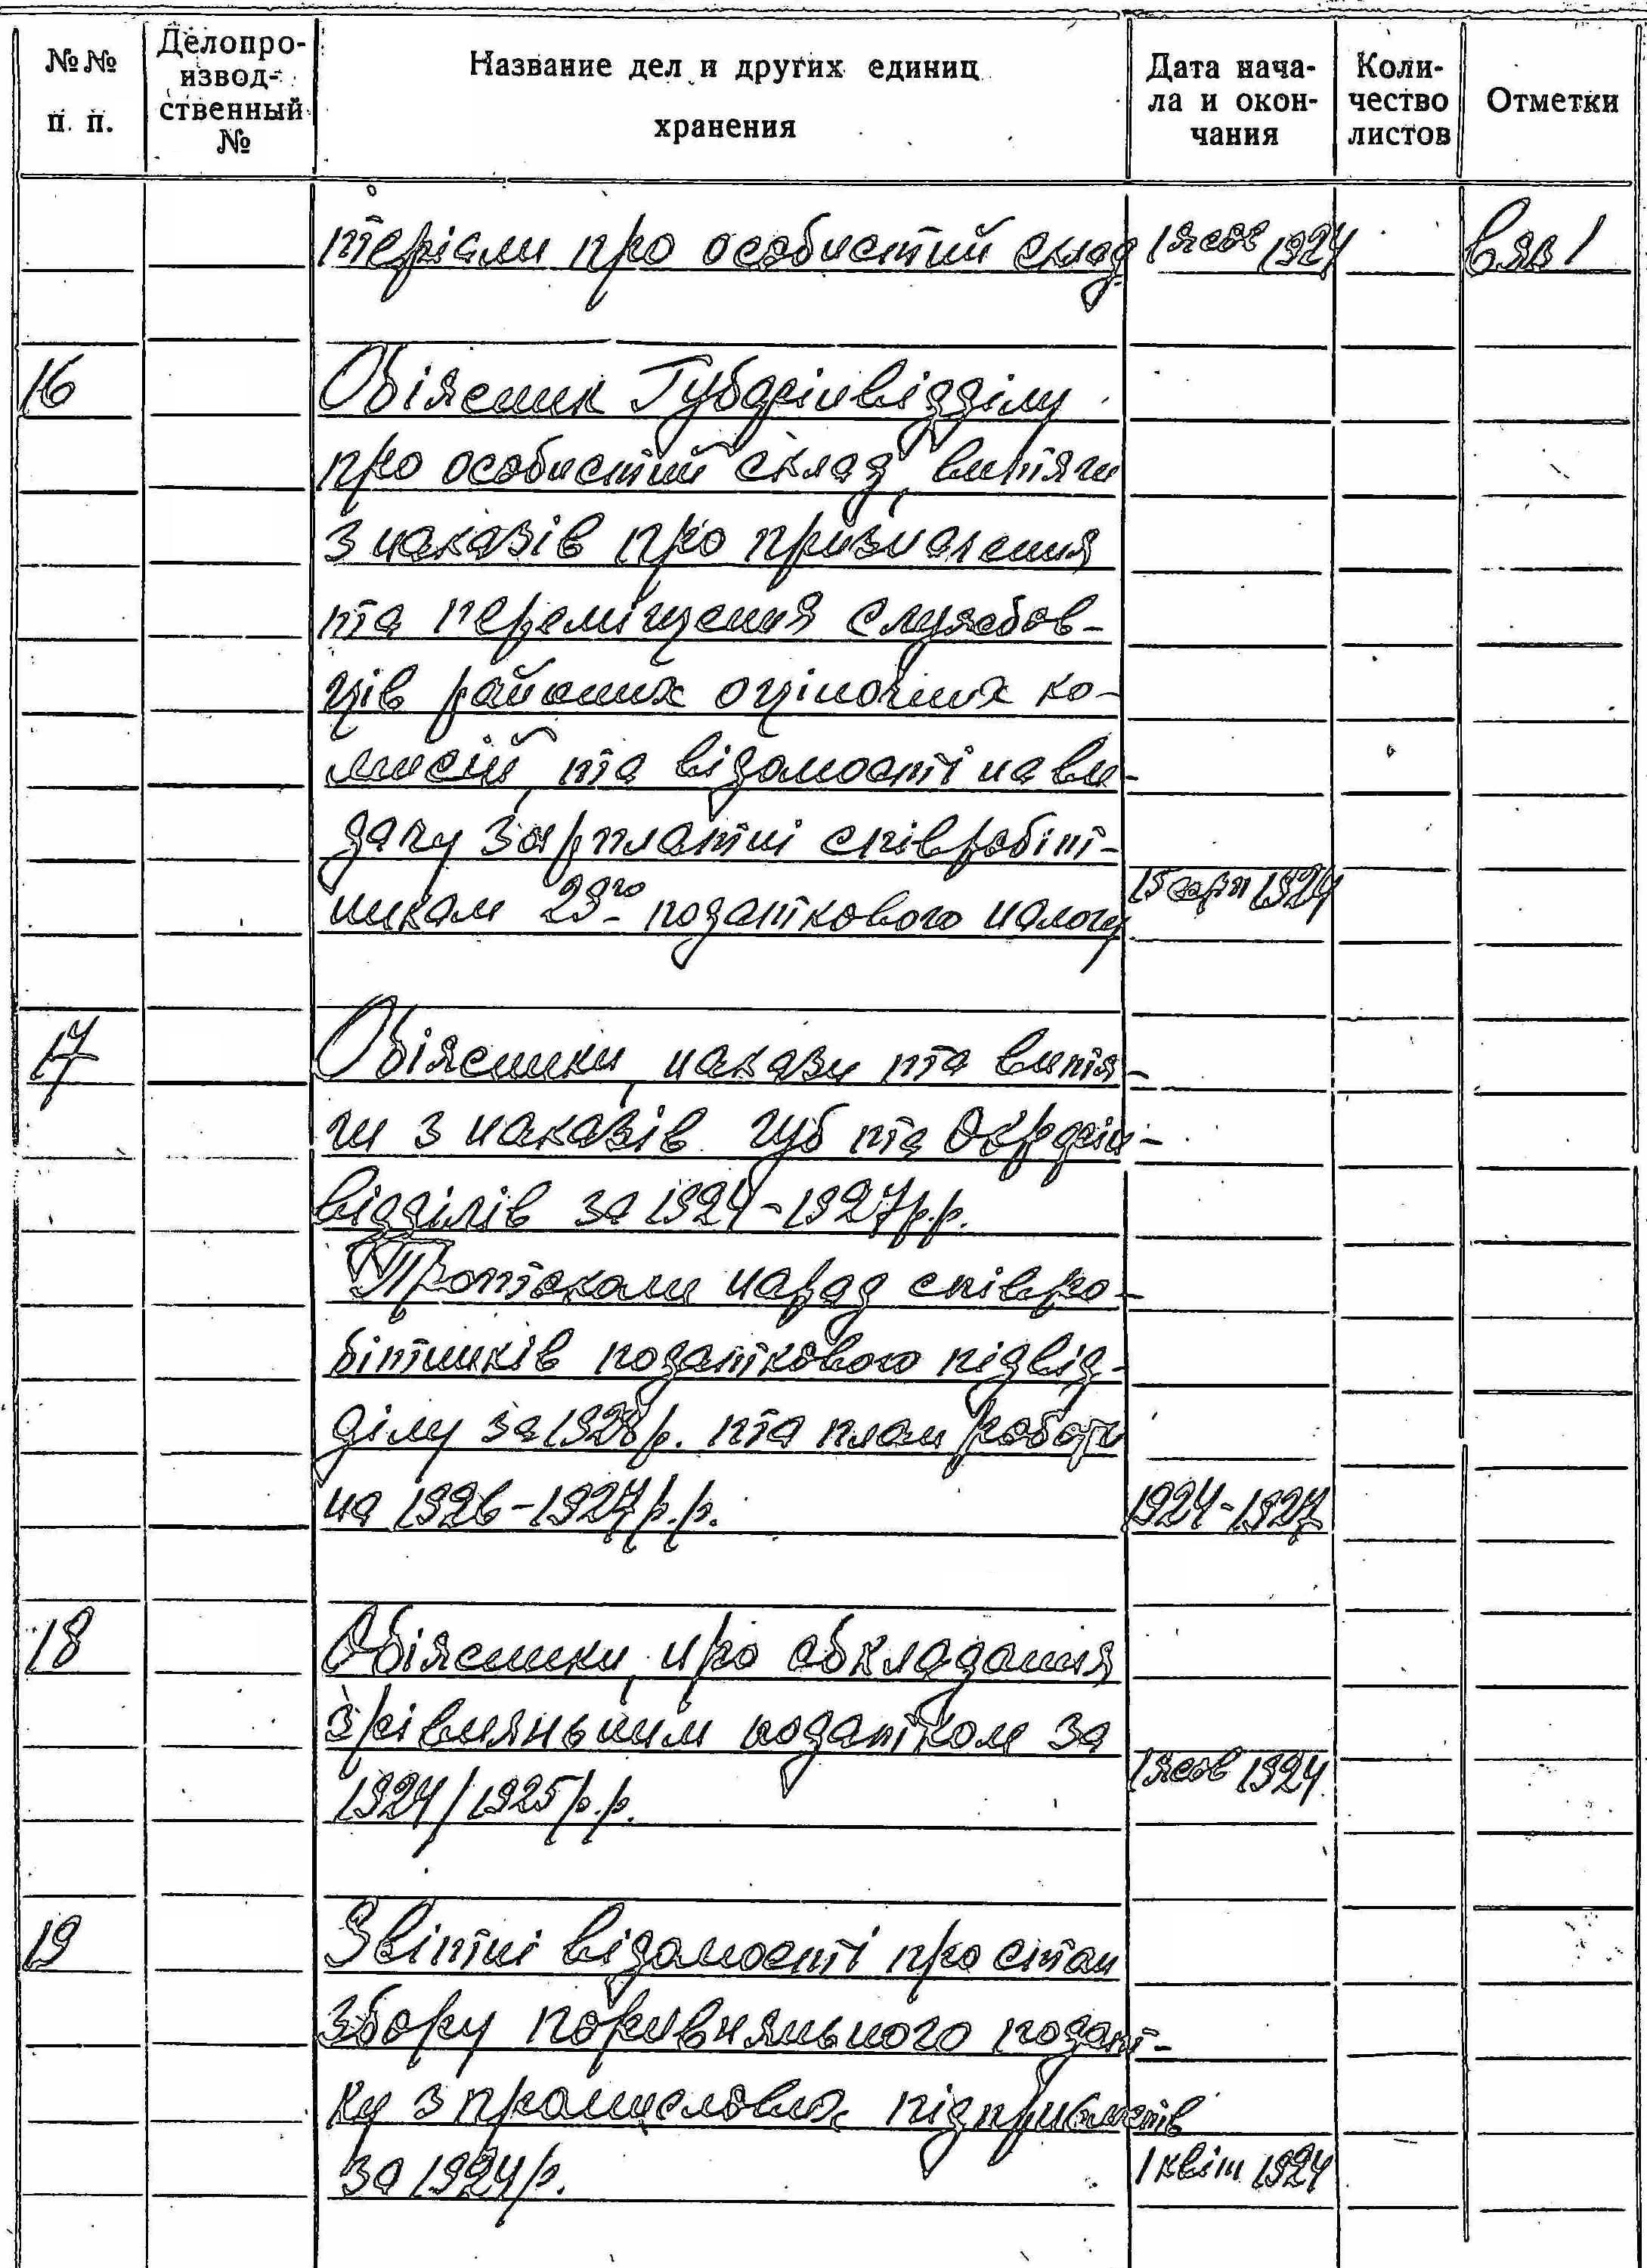 №№ п. п. Делопро-извод-ственный № Название дел и других единиц хранения Дата нача-ла и окон-чания Коли-чество листов Отметки
теріали про особистий склад 1924
16 Обіясник Губфінвідділу
про особистий склад, витяги
з наказів про призначення
та переміщення службов-
ців районих оціночних ко-
мисій, та відомості на ви-
дачу зарплатні співробіт-
никам 29го податкового налогу 15 серп 1924
17 Обіясники, накази та витя-
ги з наказів губ та Окрфін-
відділів за 1924-1927 р.р.
Протоколи нарад співро-
бітників податкового підвід-
ділу за 1928 р. та план роботи
на 1926-1927 р.р. 1924-1927
18 Обіясники, про обкладання
зрівняньним податком за
1924/1925 р.р. 1 жов 1924
19 Звітні відомості про стан
збору порівняньного подат-
ку з промислових підприємств
за 1924 р. 1 квіт 1924